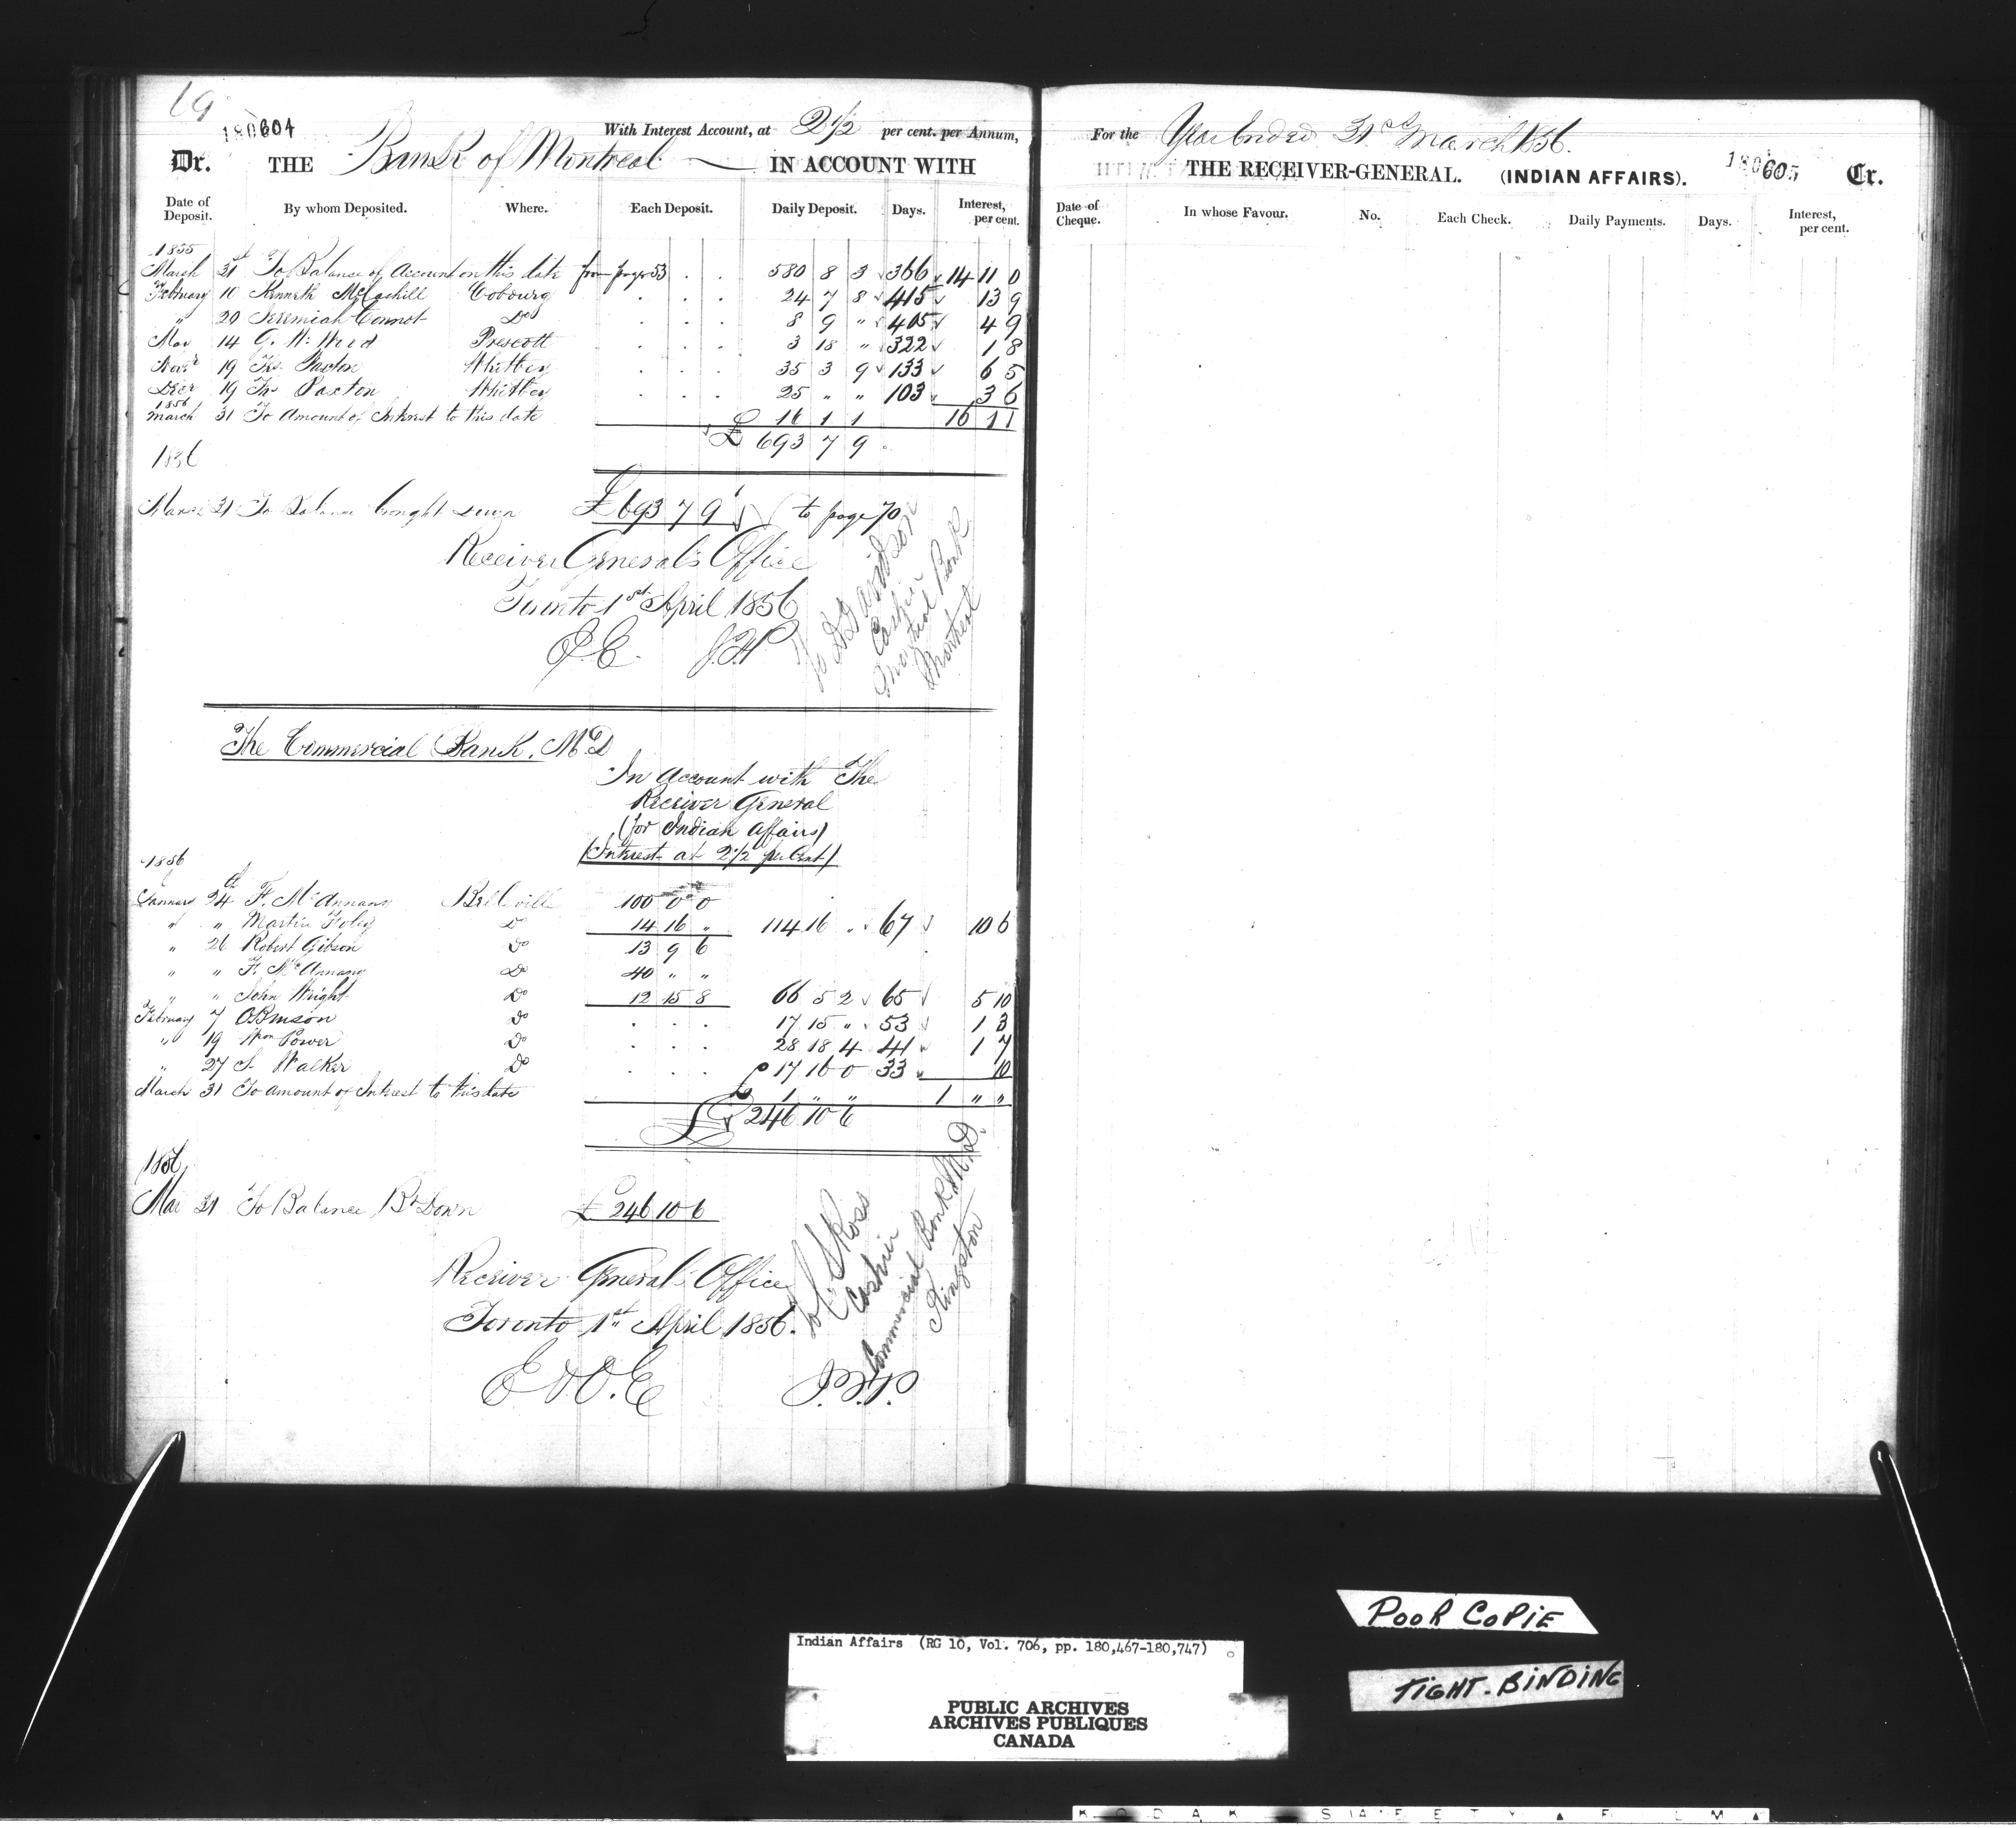 69
180604
With Interest Account, at 2½ per cent. per Annum,
Dr. THE Bank of Montreal IN ACCOUNT WITH
Date of Deposit. By whom Deposited. Where. Each Deposit. Daily Deposit. Days. Interest, per cent.
1855
March 31st To Balance of Account on this date from page 53 . . 580 8 3 366 14 11 0
February 10 Kenneth McCaskill Cobourg . . . 24 7 8 415 13 9
" 20 Jeremiah Connot Do . . . 8 9 " 405 4 9
May 14 G. W. Weed Prescott . . . 3 18 " 322 1 8
Novr 19 Ths. Paxton Whitby . . . 35 3 9 133 6 5
Decr 19 Ths Paxton Whitby . . . 25 " " 103 3 6
1856
March 31 To Amount of Interest to this date 16 1 1 16 1 1
£ 693 7 9
1856
March 31 To Balance brought down £693 7 9 to page 70
Receiver General's Office
Toronto 1st April 1856
E.E. J.H.P
To D Davidson
Cashier
Montreal Bank
Montreal
The Commercial Bank. M.D
In Account with The
Receiver General
(for Indian Affairs)
(Interest at 2½ per Cent)
1856
January 24th F. McAnnany Belleville 100 0 0
" " Martin Foley Do 14 16 " 114 16 " 67 10 6
" 26 Robert Gibson Do 13 9 6
" " F. McAnnany Do 40 " "
" " John Wright Do 12 15 8 66 5 2 65 5 10
February 7 O Benson Do . . . 17 15 " 53 1 3
" 19 Wm Power Do . . . 28 18 4 41 1 7
" 27 S. Walker Do . . . 17 16 0 33 10
March 31 To amount of Interest to this date £ 1 " " 1 " "
£ 246 10 6
1856
Mar 31 To Balance Bt Down £ 246 10 6
Receiver General's Office
Toronto 1st April 1856.
E & O.E J.H.P.
To C. S Ross
Cashier
Commercial Bank M.D.
Kingston
For the Year Ended 31st March 1856.
THE RECEIVER-GENERAL. (INDIAN AFFAIRS). 180605 Cr.
Date of Cheque. In whose Favour. No. Each Check. Daily Payments. Days. Interest, per cent.
POOR COPIE
TIGHT-BINDING
Indian Affairs (RG 10, Vol. 706, pp. 180,467-180,747)
PUBLIC ARCHIVES
ARCHIVES PUBLIQUES
CANADA
KODAK SAFETY ▲ FILM ▲